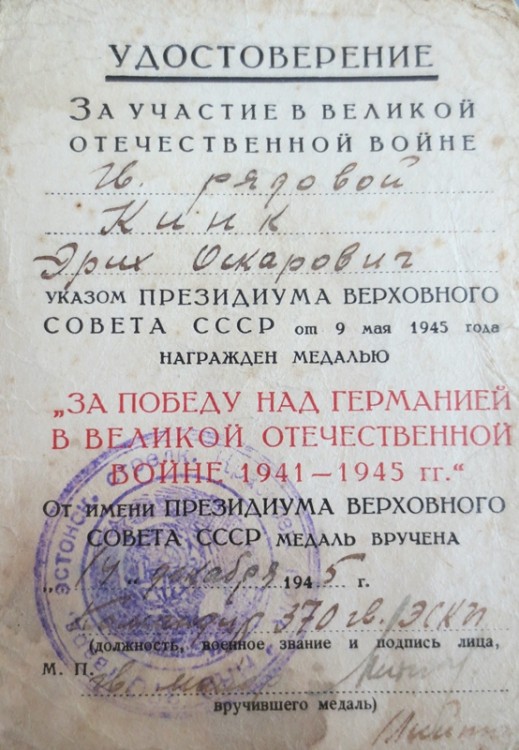 УДОСТОВЕРЕНИЕ
ЗА УЧАСТИЕ В ВЕЛИКОЙ
ОТЕЧЕСТВЕННОЙ ВОЙНЕ
Гв. рядовой
Кинк
Эрих Оскарович
УКАЗОМ ПРЕЗИДИУМА ВЕРХОВНОГО
СОВЕТА СССР от 9 мая 1945 года
НАГРАЖДЕН МЕДАЛЬЮ
„ЗА ПОБЕДУ НАД ГЕРМАНИЕЙ
В ВЕЛИКОЙ ОТЕЧЕСТВЕННОЙ
ВОЙНЕ 1941—1945 гг.“
От имени ПРЕЗИДИУМА ВЕРХОВНОГО
СОВЕТА СССР МЕДАЛЬ ВРУЧЕНА
„14„ декабря 1945 г.
Командир 370 гв. ЭСКП
(должность, военное звание и подпись лица,
М. П. гв.
вручившего медаль)
ЭСТОНСК. СТРЕЛК.